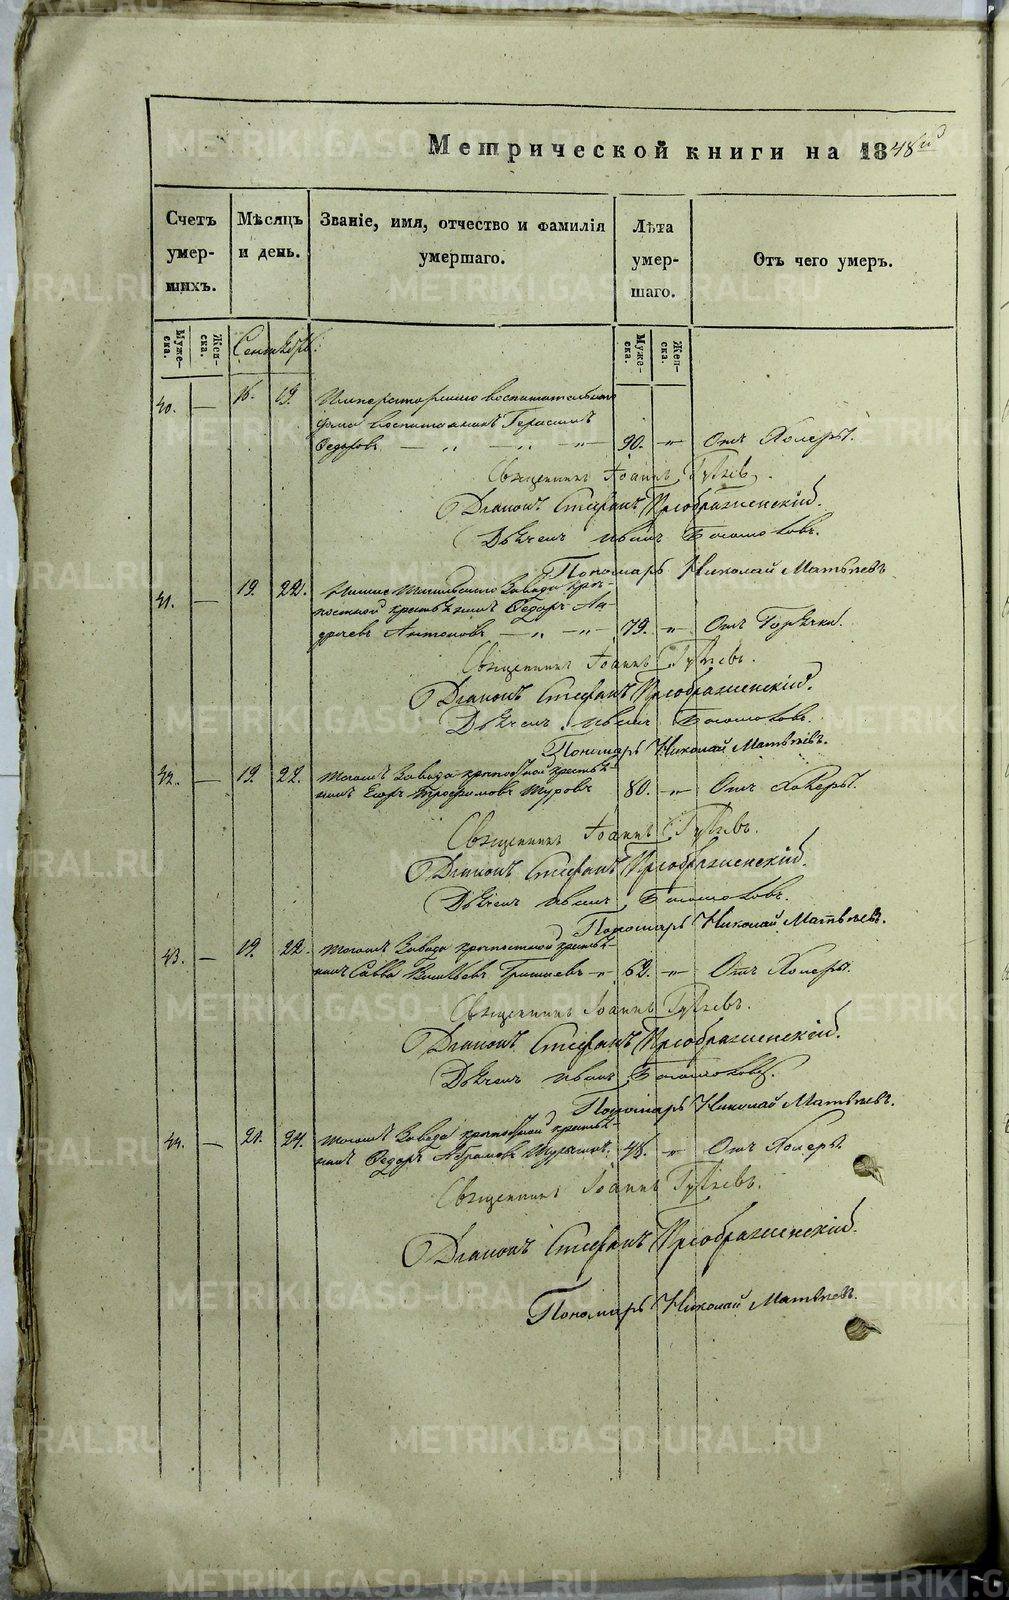 Метрической книги на 1848й
Счетъ умершихъ.
Мѣсяцъ и день.
Званіе, имя, отчество и фамилія умершаго.
Лѣта умершаго.
Отъ чего умеръ.
Мужеска.
Женска.
Сентябрь.
Мужеска.
Женска.
40. — 16. 19. Императорскаго воспитательнаго
дома воспитанникъ Герасимъ
Федоровъ — „ — „ — 90. „ Отъ Холеры.
Священникъ Іоаннъ
Діаконъ Стефанъ Преображенскій.
Дьячекъ Иванъ Богомоловъ.
Пономарь Николай Матвѣевъ
41. — 19. 22. Нижне Тагильскаго Завода крѣ-
постной крестьянинъ Федоръ Ан-
дреевъ Антоновъ — „ — „ — 79. „ Отъ Горячки.
Священникъ Іоаннъ
Діаконъ Стефанъ Преображенскій.
Дьячекъ Иванъ Богомоловъ.
Пономарь Николай Матвѣевъ.
42. — 19. 22. Тогожъ Завода крѣпостной крестья-
нинъ Егоръ Трофимовъ 80. „ Отъ Холеры.
Священникъ Іоаннъ
Діаконъ Стефанъ Преображенскій.
Дьячекъ Иванъ Богомоловъ.
Пономарь Николай Матвѣевъ.
43. — 19. 22. Тогожъ Завода крѣпостной крестья-
нинъ Савва Васильевъ — „ 62. „ Отъ Холеры.
Священникъ Іоаннъ
Діаконъ Стефанъ Преображенскій.
Дьячекъ Иванъ Богомоловъ.
Пономарь Николай Матвѣевъ.
44. — 21. 24. Тогожъ Завода крѣпостной крестья-
нинъ Федоръ Абрамовъ 48. „ Отъ Холеры.
Священникъ Іоаннъ
Діаконъ Стефанъ Преображенскій.
Пономарь Николай Матвѣевъ.
METRIKI.GASO-URAL.RU